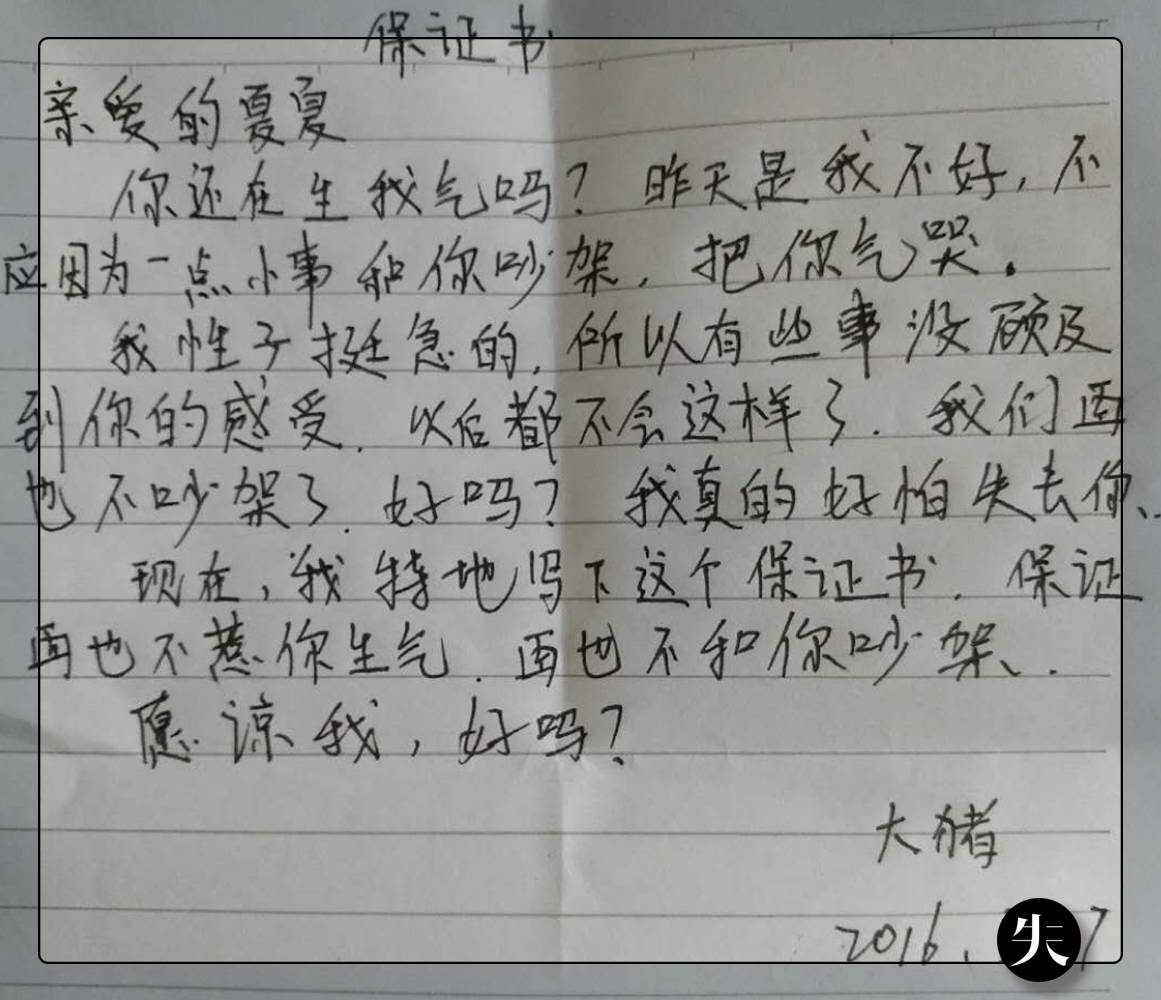 保证书
亲爱的夏夏
你还在生我气吗？昨天是我不好，不
应因为一点小事和你吵架，把你气哭。
我性子挺急的，所以有些事没顾及
到你的感受，以后都不会这样了．我们再
也不吵架了，好吗？我真的好怕失去你、．
现在，我特地写下这个保证书．保证
再也不惹你生气．再也不和你吵架、．
愿谅我，好吗？
大猪
2016．
7
失